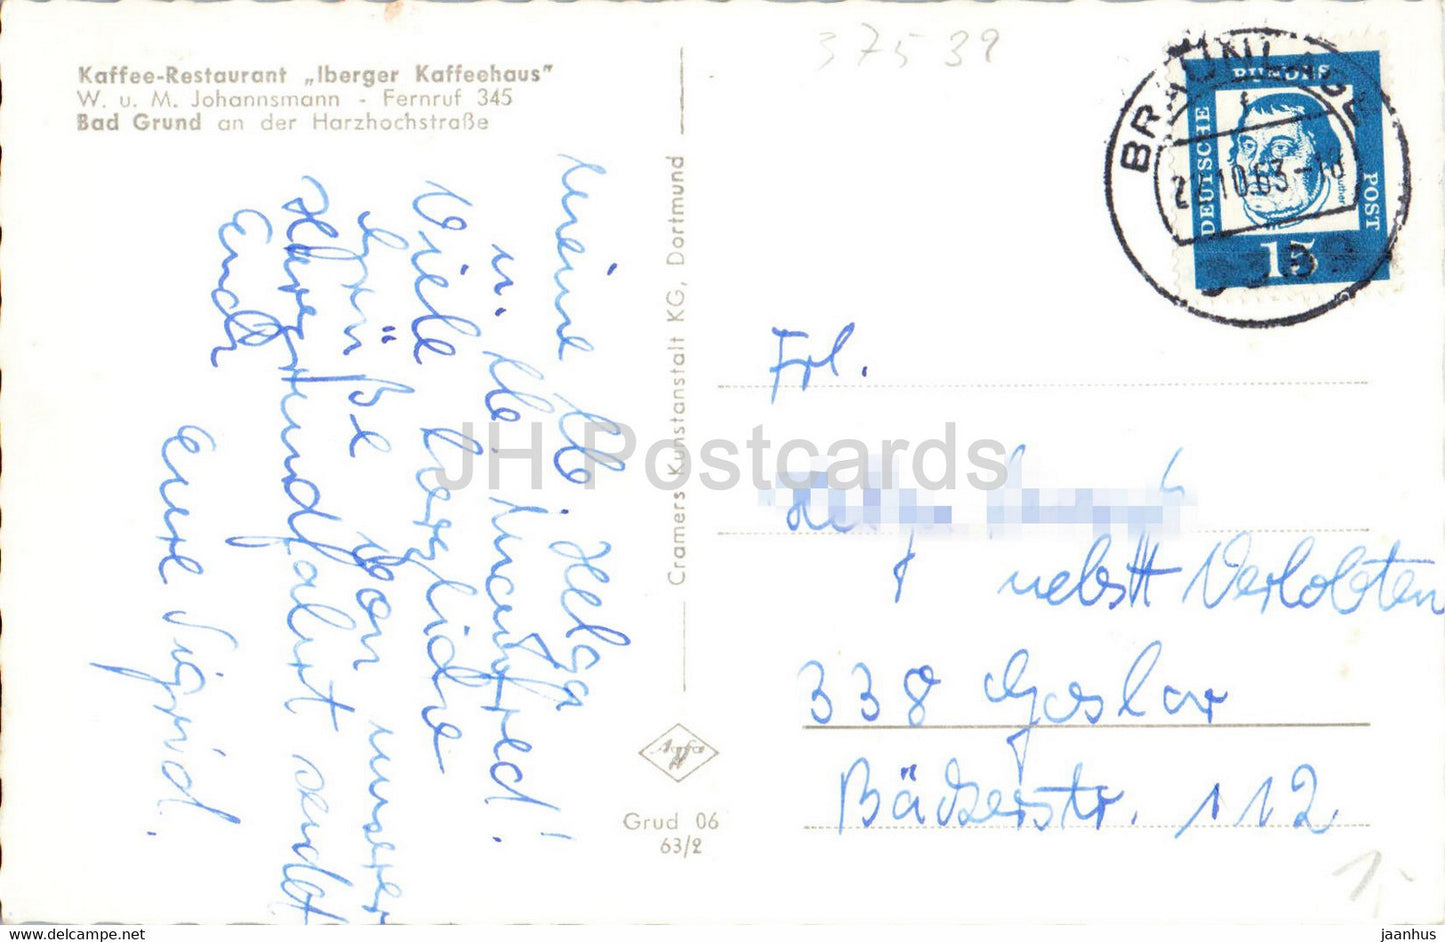 Kaffee-Restaurant „Iberger Kaffeehaus"
W. u. M. Johannsmann - Fernruf 345
Bad Grund an der Harzhochstraße
Meine lb. Helga
u. lb. Manfred!
Viele herzliche
Grüße von unserer
Harzrundfahrt sendet
Euch
Eure Sigrid.
Cramers Kunstanstalt KG, Dortmund
Grud 06
63/2
37539
BRAUNLAGE
10.63-18
DEUTSCHE
BUNDES
POST
Luther
15
Frl.
nebst Verlobten
338 Goslar
Bäckerstr. 112.
JH Postcards
https://www.delcampe.net
jaanhus